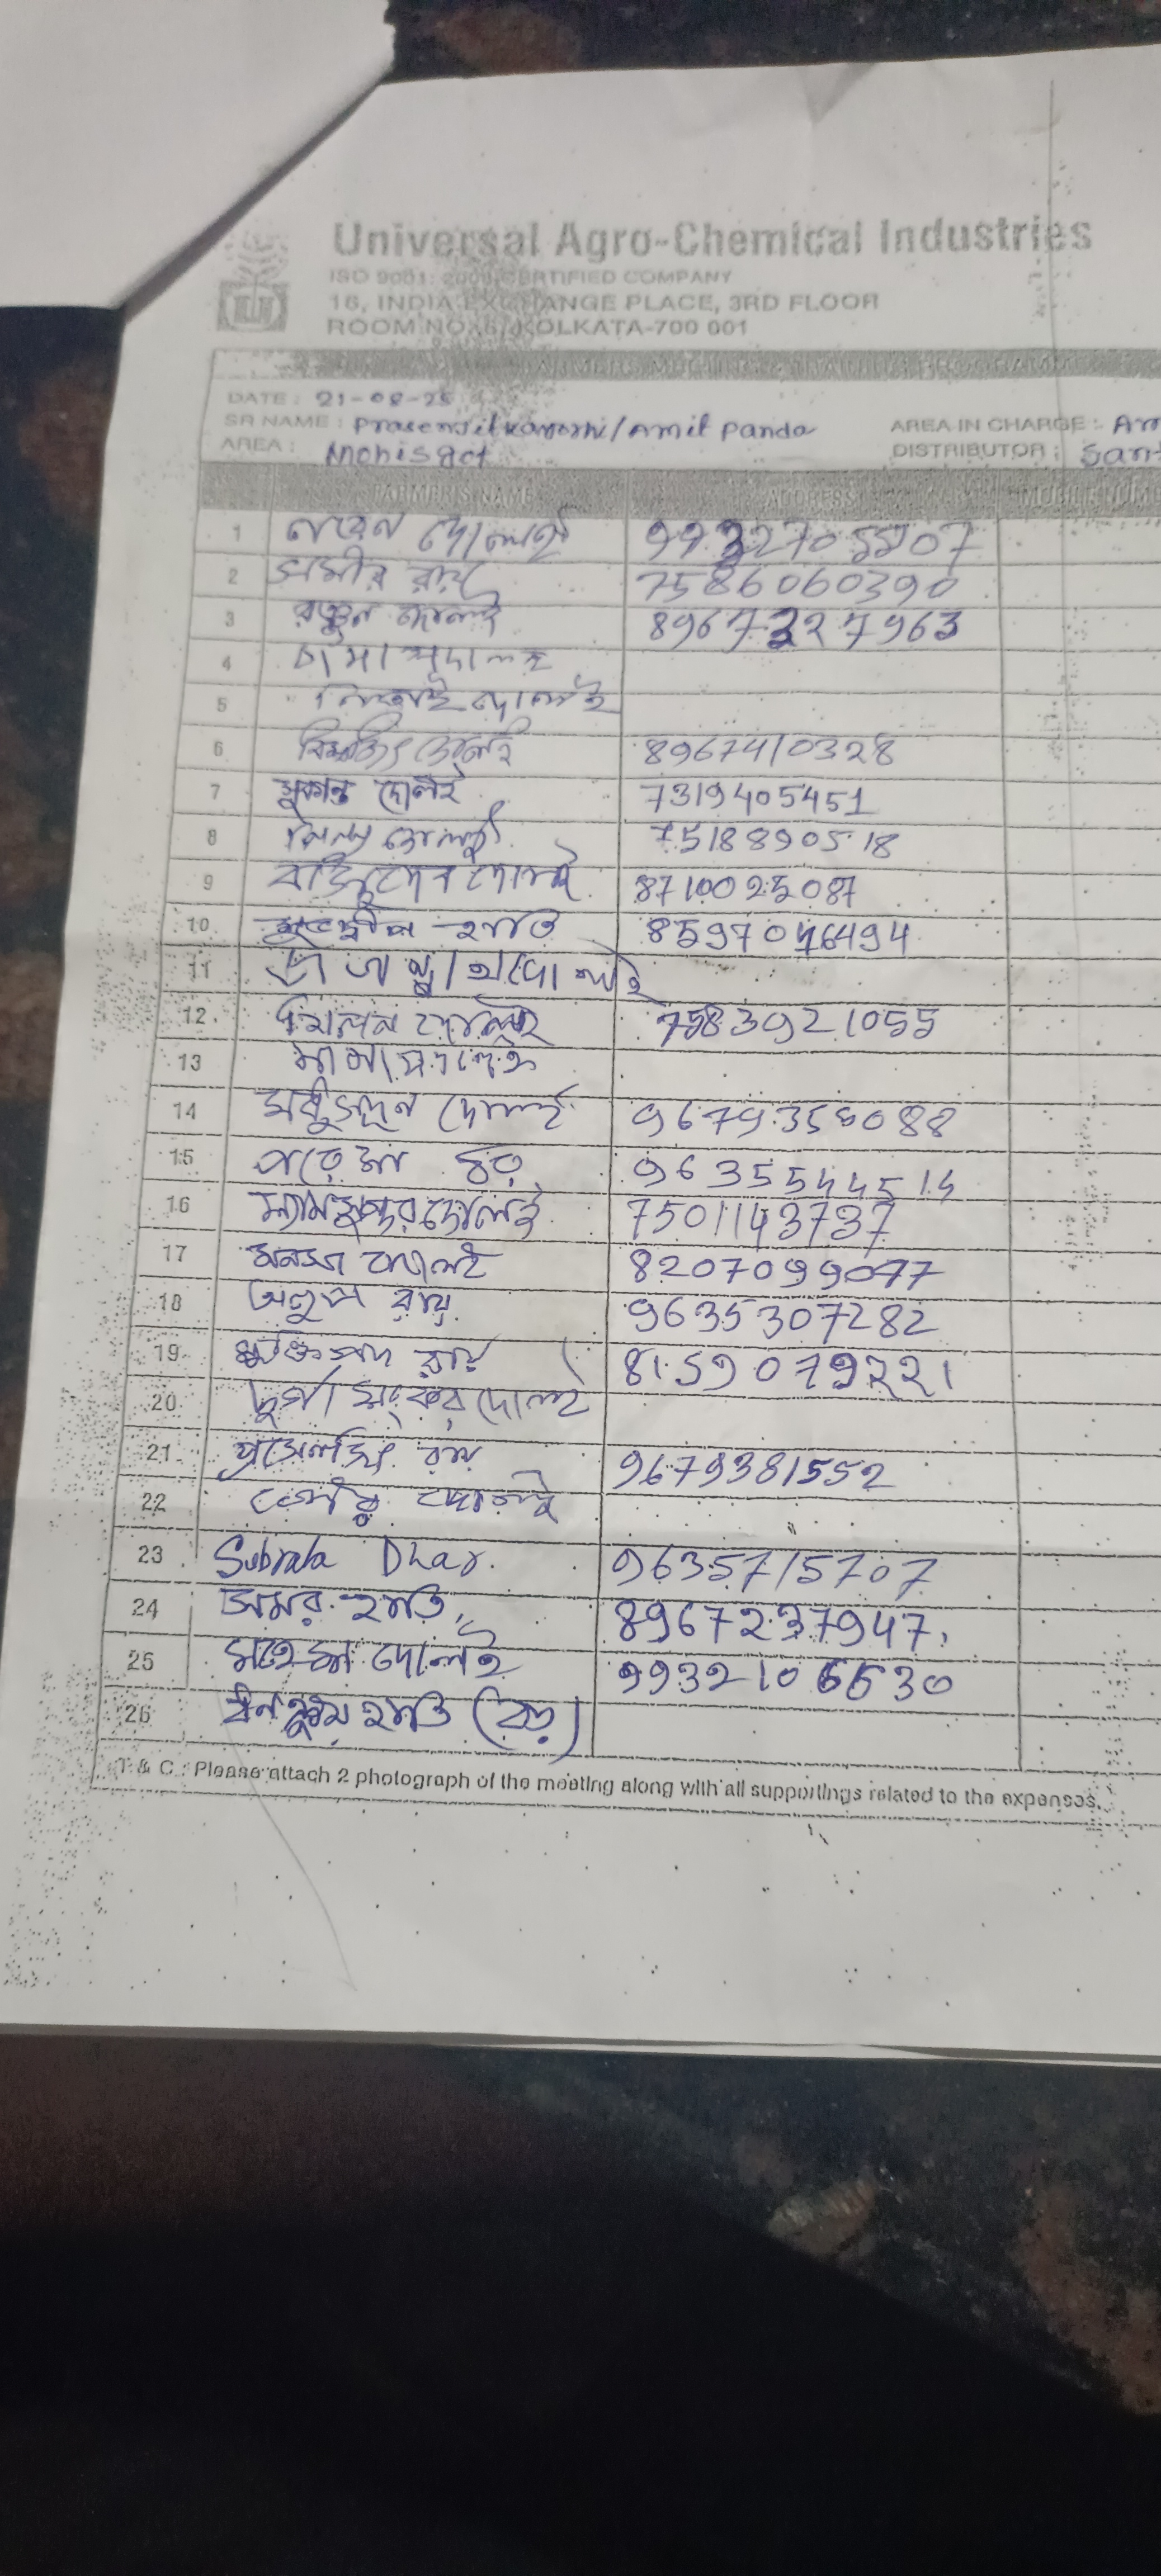 Universal Agro-Chemical Industries
ISO 9001: 2000 CERTIFIED COMPANY
16, INDIA EXCHANGE PLACE, 3RD FLOOR
ROOM NO. KOLKATA-700 001
FARMERS MEETING PROGRAMME
DATE : 21-08-25
SR NAME : Prasenjit / Amit Panda AREA IN CHARGE :-
AREA : DISTRIBUTOR :
FARMER'S NAME ADDRESS
1 দোলই
2 সমীর রায় 7586060390
3 দোলই 8967327963
4
5 নিতাই দোলই
6 বিশ্বজিৎ দোলই 8967410328
7 সুকান্ত দোলই 7319405451
8 দোলই 7518890518
9 বাসুদেব দোলই 8710025087
10 হাতি 8597046494
11
12 মিলন দোলই 7583921055
13
14 মধুসূদন দোলই 9679358088
15 পরেশ ধর 9635544514
16 শ্যামসুন্দর দোলই 7501143737
17 মনসা দোলই 8207099077
18 অনুপ রায় 9635307282
19 শক্তিপদ রায় 8159079221
20 দুর্গা শংকর দোলই
21 প্রসেনজিৎ রায় 9679381552
22 গৌর দোলই
23 Subrata Dhar. 9635715707
24 অমর হাতি, 8967237947,
25 মহেশ দোলই 9932106630
26 হাতি (বড়)
T & C : Please attach 2 photograph of the meeting along with all supportings related to the expenses.